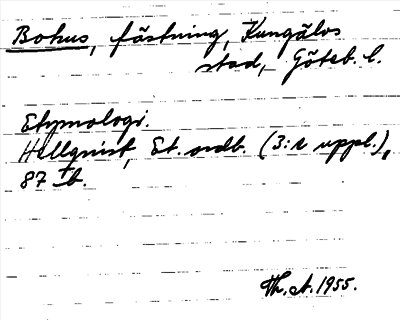 Bohus, fästning, Kungälvs
stad, Göteb. l.
Etymologi.
Hellquist, Et. ordb. (3:e uppl.),
87 f b.
Th. A. 1955.